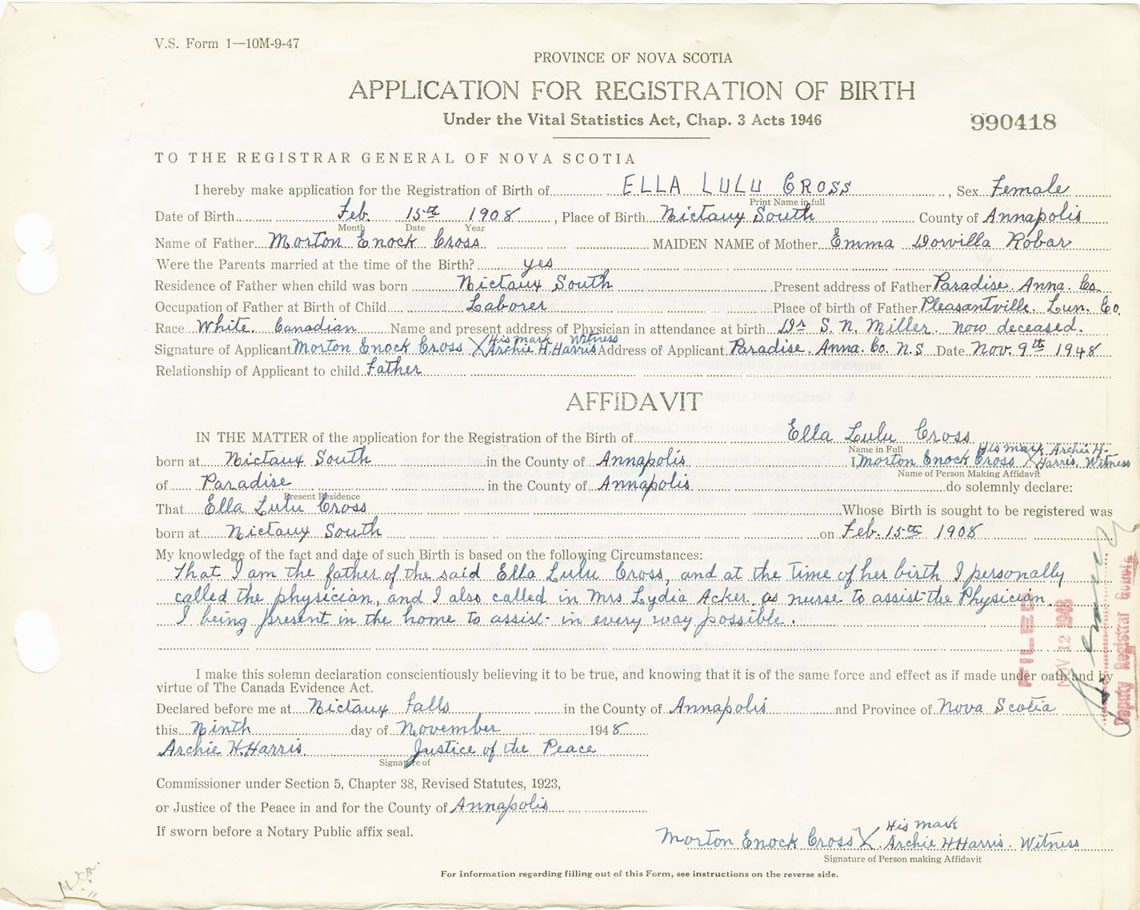 V.S. Form 1—10M-9-47
PROVINCE OF NOVA SCOTIA
APPLICATION FOR REGISTRATION OF BIRTH
Under the Vital Statistics Act, Chap. 3 Acts 1946
990418
TO THE REGISTRAR GENERAL OF NOVA SCOTIA
I hereby make application for the Registration of Birth of ELLA LULU CROSS, Sex Female
Print Name in full
Date of Birth Feb. 15th 1908, Place of Birth Nictaux South County of Annapolis
Month Date Year
Name of Father Morton Enock Cross MAIDEN NAME of Mother Emma Dorvilla Robar
Were the Parents married at the time of the Birth? yes
Residence of Father when child was born Nictaux South Present address of Father Paradise Anna. Co.
Occupation of Father at Birth of Child Laborer Place of birth of Father Pleasantville Lun. Co.
Race White. Canadian Name and present address of Physician in attendance at birth Dr S. N. Miller. now deceased.
His mark Witness
Signature of Applicant Morton Enock Cross X Archie H. Harris Address of Applicant Paradise. Anna. Co. N.S Date Nov. 9th 1948
Relationship of Applicant to child Father
AFFIDAVIT
IN THE MATTER of the application for the Registration of the Birth of Ella Lulu Cross
Name in Full His mark Archie H.
born at Nictaux South in the County of Annapolis I, Morton Enock Cross X Harris, Witness
Name of Person Making Affidavit
of Paradise in the County of Annapolis do solemnly declare:
Present Residence
That Ella Lulu Cross Whose Birth is sought to be registered was
born at Nictaux South on Feb. 15th 1908
My knowledge of the fact and date of such Birth is based on the following Circumstances:
That I am the father of the said Ella Lulu Cross, and at the time of her birth I personally
called the physician, and I also called in Mrs Lydia Acker. as nurse to assist the Physician.
I being present in the home to assist in every way possible.
I make this solemn declaration conscientiously believing it to be true, and knowing that it is of the same force and effect as if made under oath and by
virtue of The Canada Evidence Act.
Declared before me at Nictaux Falls in the County of Annapolis and Province of Nova Scotia
this Ninth day of November 1948
Archie H. Harris. Justice of the Peace
Signature of
Commissioner under Section 5, Chapter 38, Revised Statutes, 1923,
or Justice of the Peace in and for the County of Annapolis
If sworn before a Notary Public affix seal.
His mark
Morton Enock Cross X Archie H Harris. Witness
Signature of Person making Affidavit
For information regarding filling out of this Form, see instructions on the reverse side.
FILED
NOV 12 1948
Deputy Registrar General